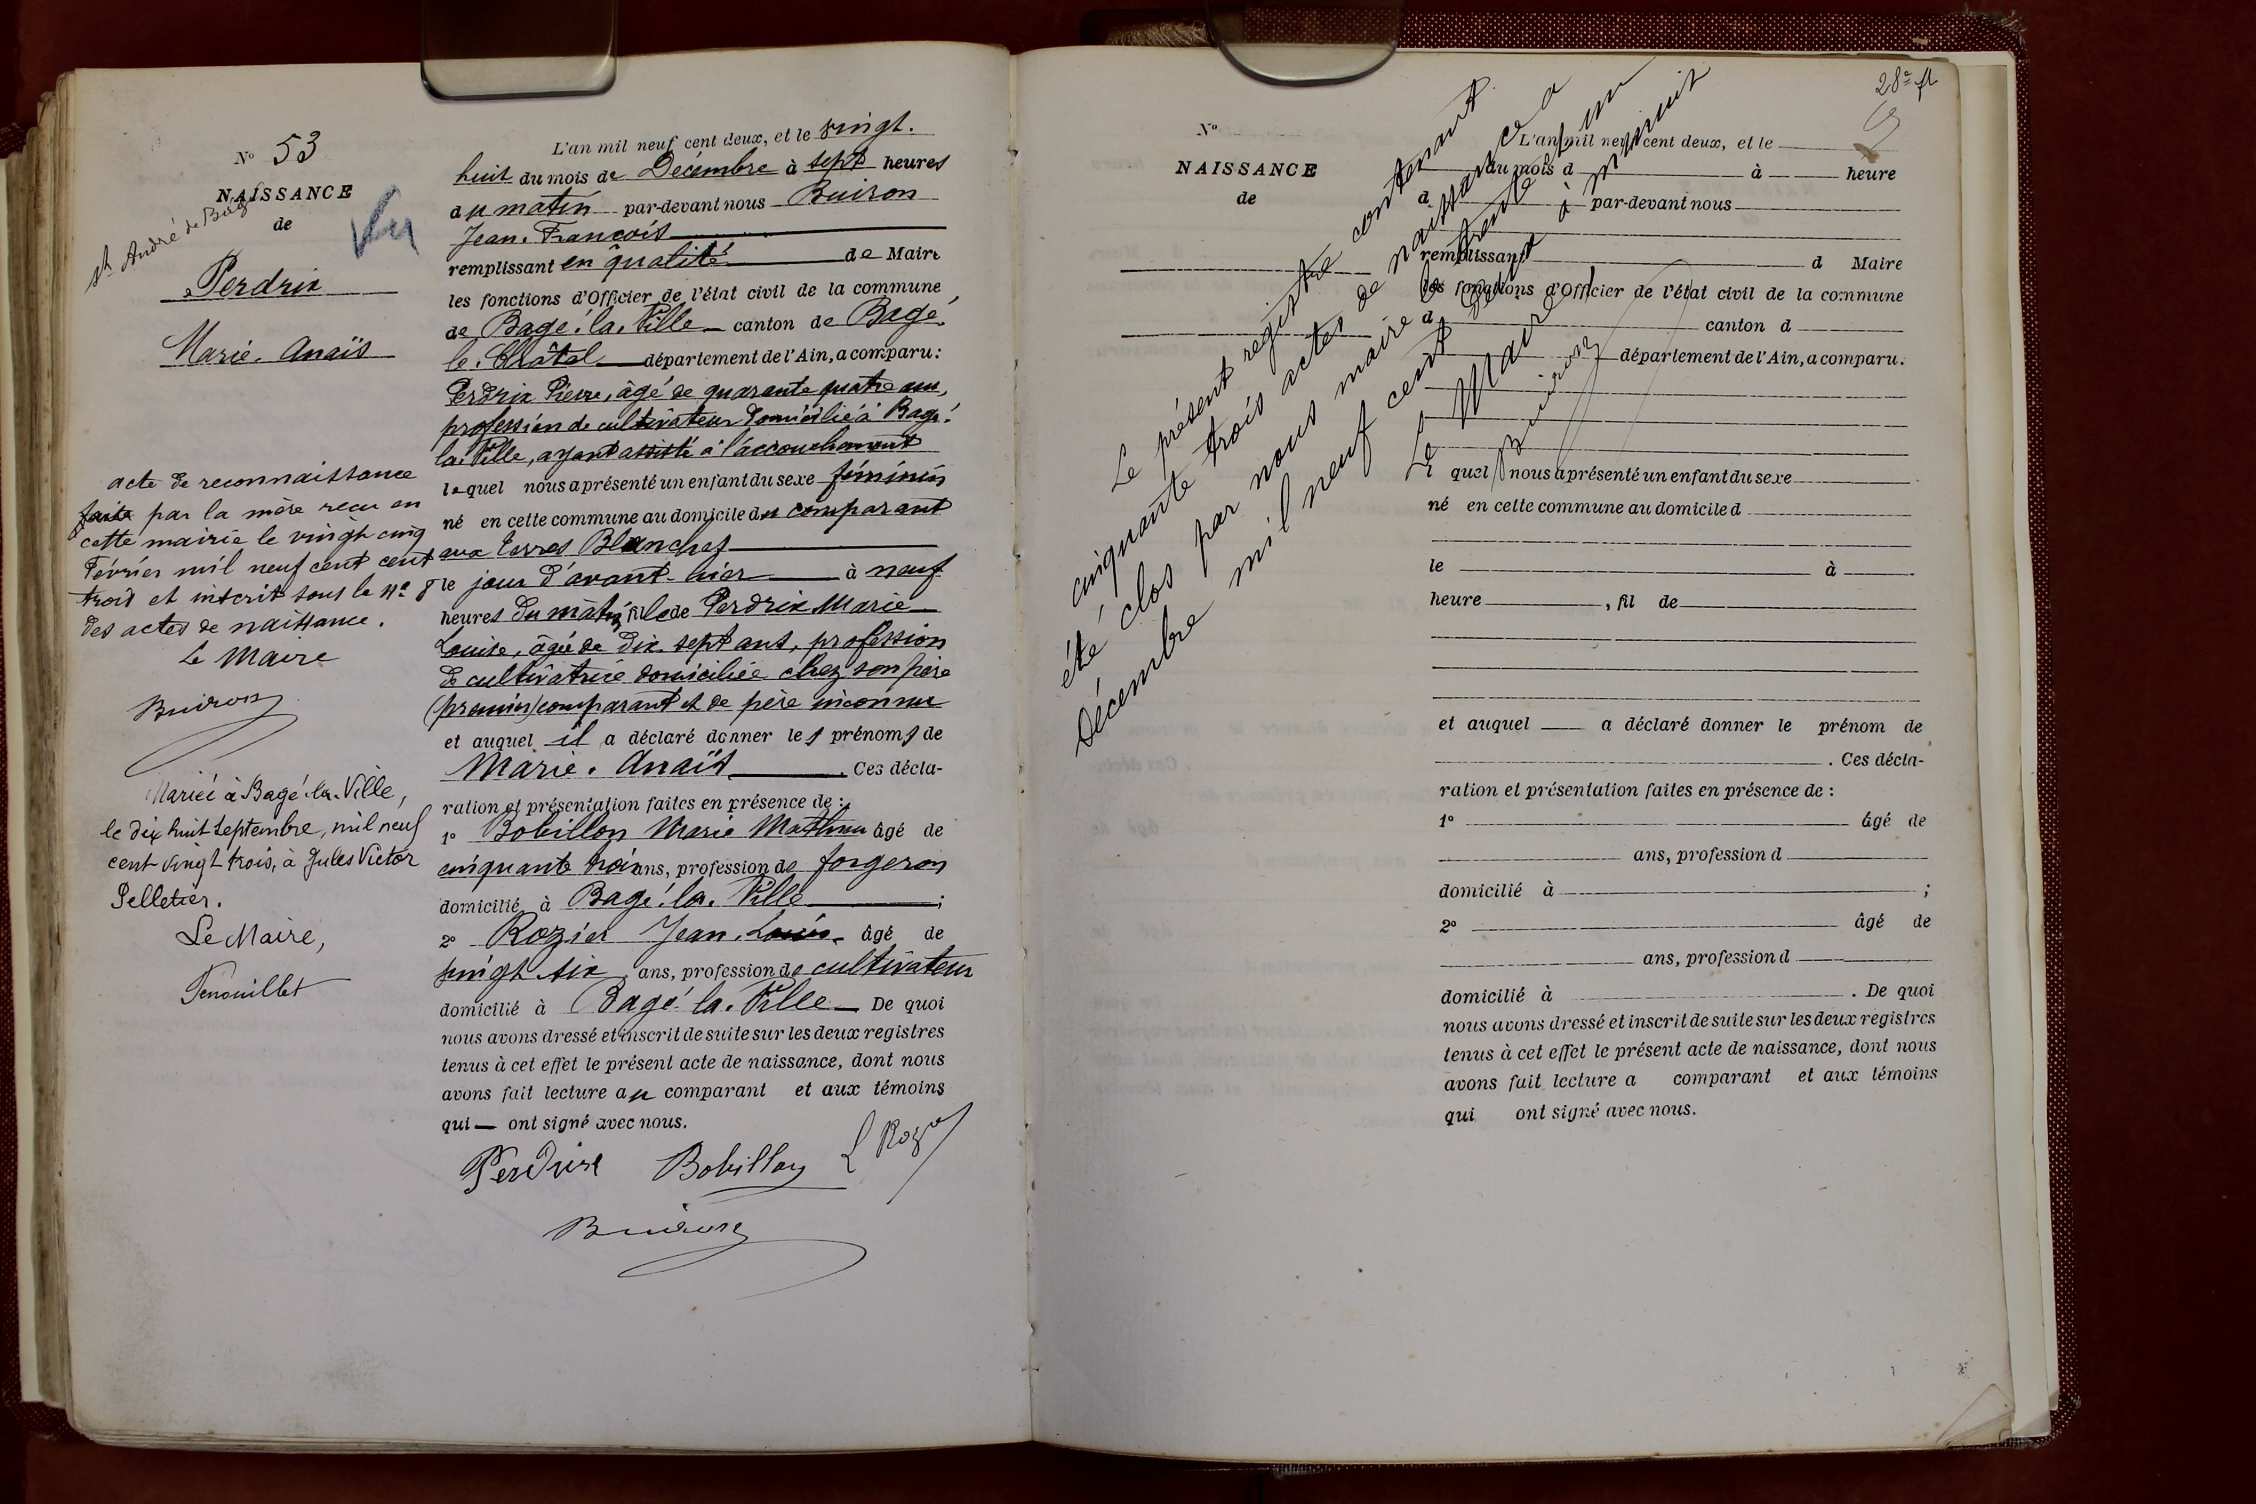 N° 53
NAISSANCE
de
St André de Bagé
Perdrix
Marie. Anaïs
Vu
acte de reconnaissance
faite par la mère reçu en
cette mairie le vingt cinq
Février mil neuf cent cent
trois et inscrit sous le N° 8
des actes de naissance.
Le Maire
Buiron
Mariée à Bagé-la-Ville,
le dix huit septembre, mil neuf
cent vingt trois, à Jules Victor
Pelletier.
Le Maire,
L'an mil neuf cent deux, et le vingt.
huit du mois de Décembre à sept heures
du matin par-devant nous Buiron
Jean. François
remplissant en qualité de Maire
les fonctions d'Officier de l'état civil de la commune
de Bagé. la. Ville canton de Bagé.
le. Châtel département de l'Ain, a comparu:
Perdrix Pierre, âgé de quarante quatre ans,
profession de cultivateur domicilié à Bagé.
la. Ville, ayant assisté à l'accouchement
lequel nous a présenté un enfant du sexe féminin
né en cette commune au domicile du comparant
aux Terres Blanches
le jour d'avant-hier à neuf
heures du matin, fille de Perdrix Marie
Louise, âgée de dix sept ans, profession
de cultivatrice domiciliée chez son père
(premier) comparant et de père inconnu
et auquel il a déclaré donner les prénoms de
Marie. Anaïs . Ces décla-
ration et présentation faites en présence de :
1° Bobillon Marie Mathieu âgé de
cinquante trois ans, profession de forgeron
domicilié à Bagé. la. Ville ;
2° Rozier Jean. Louis. âgé de
vingt six ans, profession de cultivateur
domicilié à Bagé. la. Ville De quoi
nous avons dressé et inscrit de suite sur les deux registres
tenus à cet effet le présent acte de naissance, dont nous
avons fait lecture au comparant et aux témoins
qui ont signé avec nous.
Perdrix Bobillon
Buiron
28e
N°
NAISSANCE
de
Le présent registre contenant
cinquante trois actes de naissance a
été clos par nous maire le trente un
Décembre mil neuf cent deux à minuit
Le Maire
Buiron
L'an mil neuf cent deux, et le
du mois d à heure
d par-devant nous
remplissant d Maire
les fonctions d'Officier de l'état civil de la commune
d canton d
département de l'Ain, a comparu.
quel nous a présenté un enfant du sexe
né en cette commune au domicile d
le à
heure , fil de
et auquel a déclaré donner le prénom de
. Ces décla-
ration et présentation faites en présence de :
1° âgé de
ans, profession d
domicilié à ;
2° âgé de
ans, profession d
domicilié à . De quoi
nous avons dressé et inscrit de suite sur les deux registres
tenus à cet effet le présent acte de naissance, dont nous
avons fait lecture a comparant et aux témoins
qui ont signé avec nous.